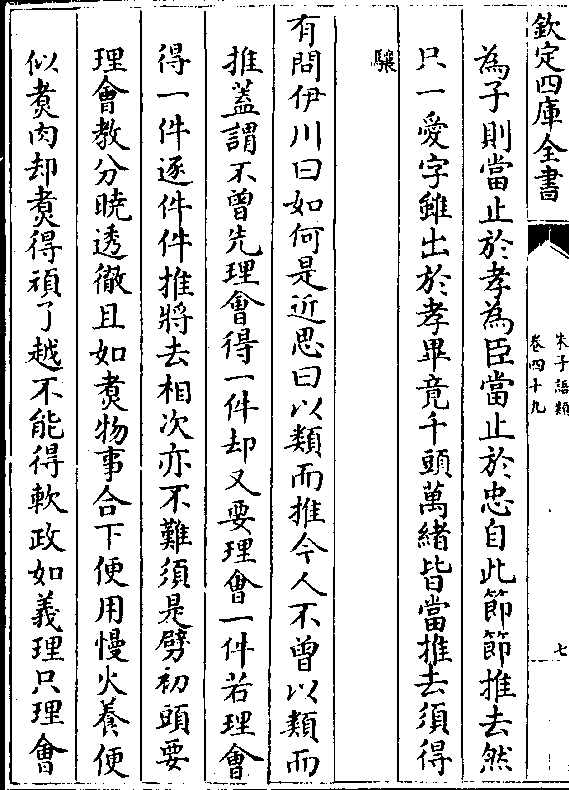 欽定四庫全書
朱子語類
卷四十九
七
為子則當止於孝為臣當止於忠自此節節推去然
只一愛字雖出於孝畢竟千頭萬緒皆當推去須得
驤
有問伊川曰如何是近思曰以類而推今人不曾以類而
推蓋謂不曾先理會得一件却又要理會一件若理會
得一件逐件件推將去相次亦不難須是劈初頭要
理會教分曉透徹且如煑物事合下便用慢火養便
似煑肉却煑得頑了越不能得軟政如義理只理會